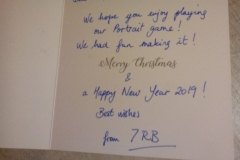 We hope you enjoy playing
our Artrait game!
We had fun making it!
Merry Christmas
&
a Happy New Year 2019!
Best wishes
from 7RB